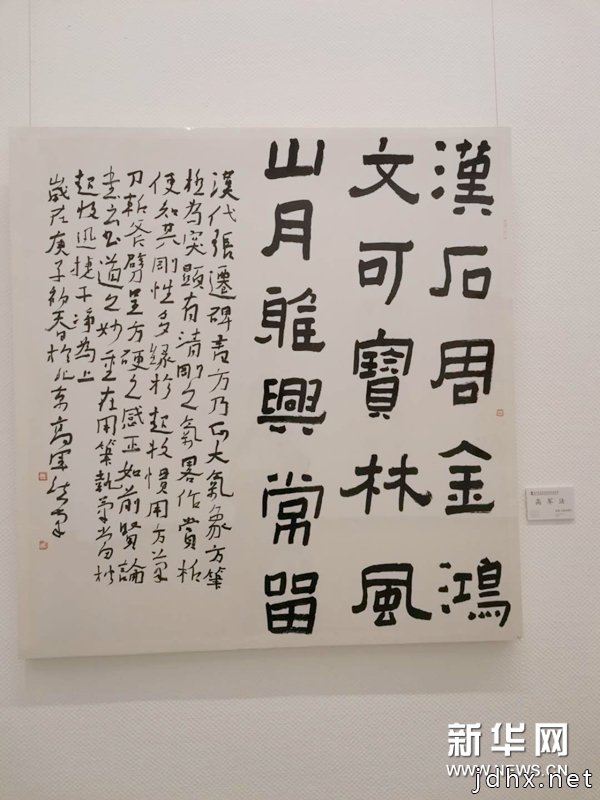 漢石周金鴻
文可寶林風
山月雅興常留
漢代張遷碑書方乃正大氣象方筆
極為突顯有清剛之氣畧作賞析
便知其剛性多緣於起收慣用方筆
刀斬斧劈呈方硬之感正如前賢論
書云書道之妙重在用筆執筆
起收迅捷干淨為上
歲在庚子初春日於北京高軍法
高軍法
新华网
WWW.NEWS.CN
jdhx.net